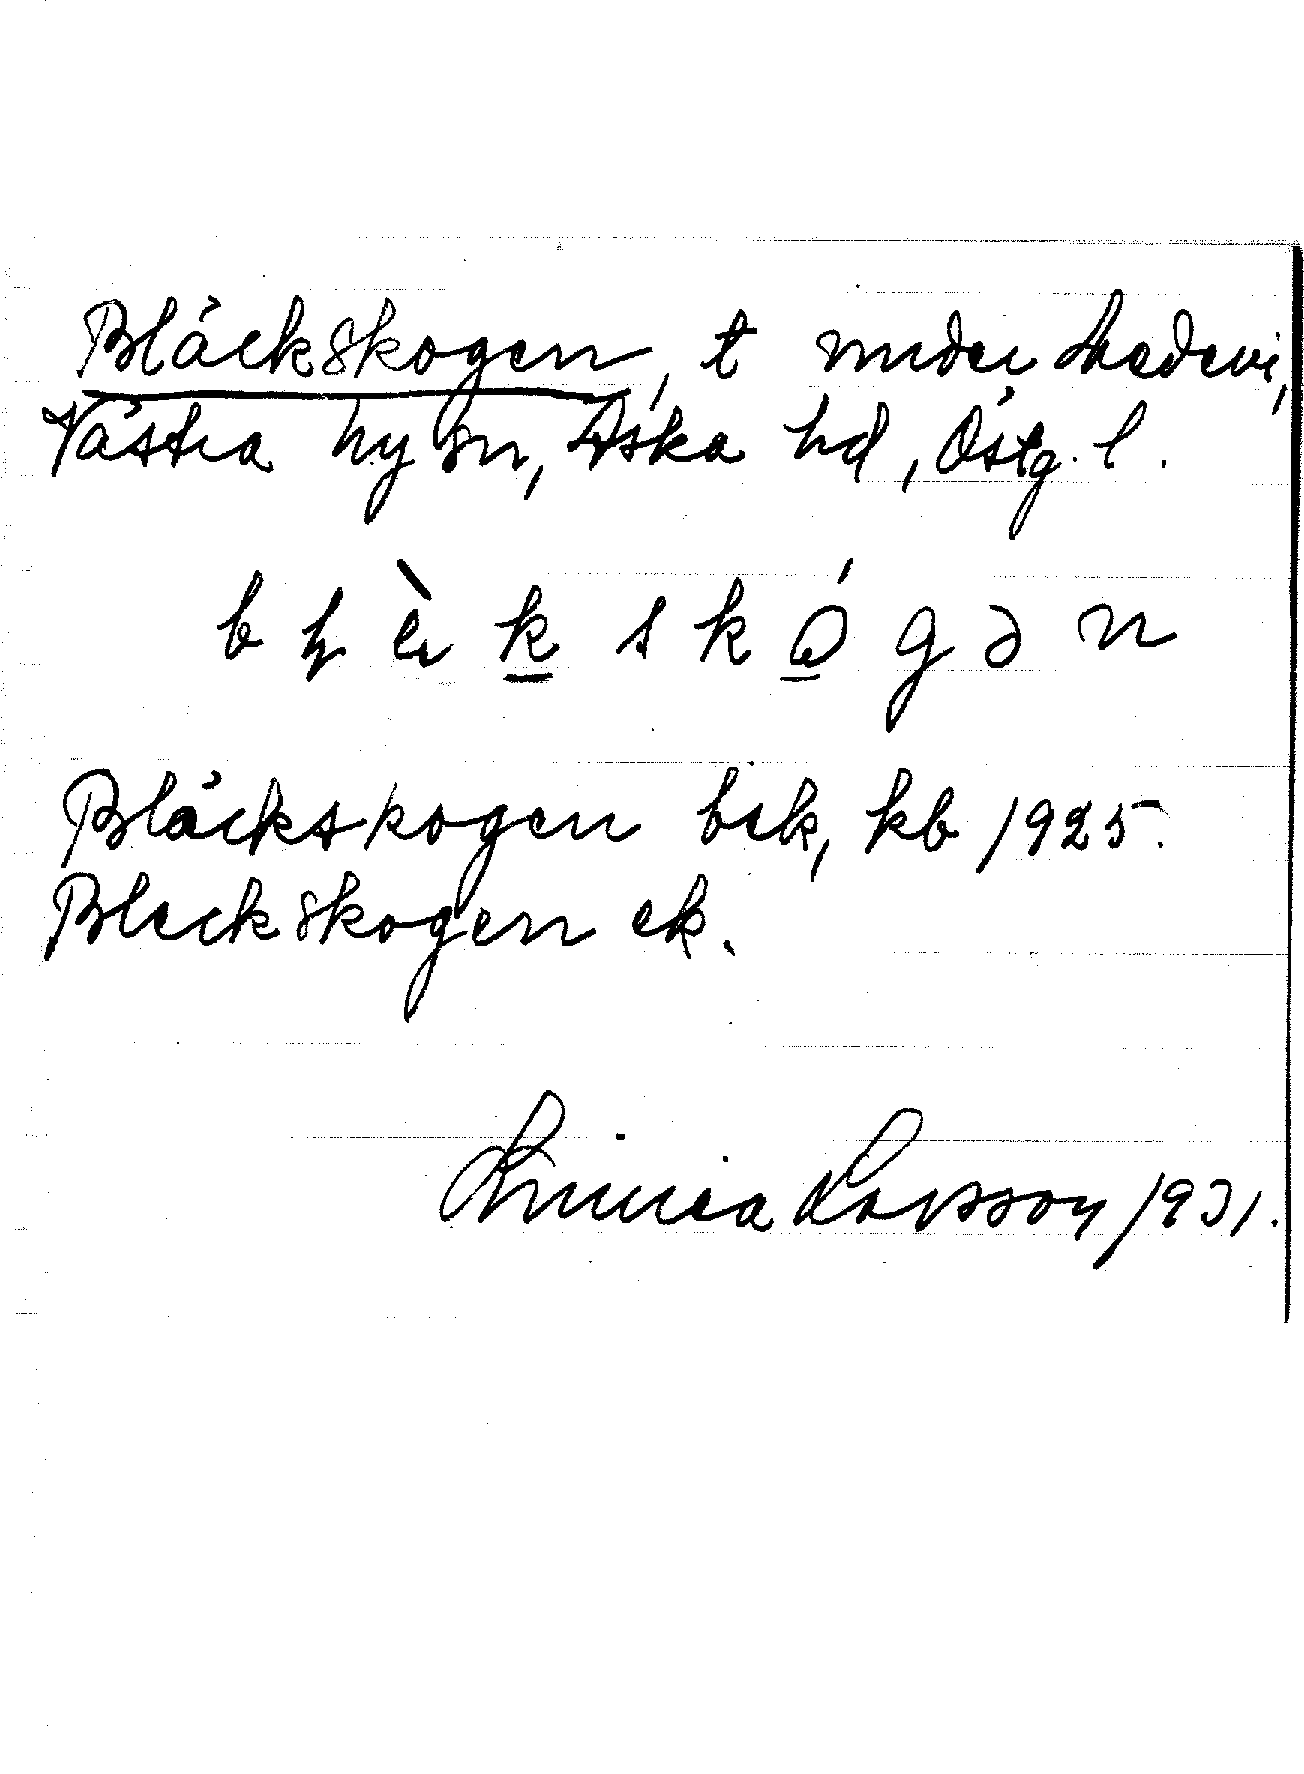 Bläckskogen, t under Medevi,
Västra Ny sn, Aska hd, Östg. l.
Bläckskogen bsk, kb 1925.
Bleckskogen ek.
Linnea Larsson 1931.